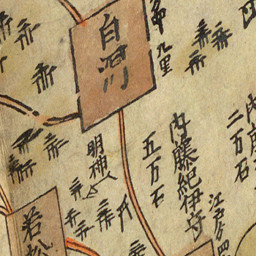 白河
九里
内藤紀伊守
五万石
二万石
明神
若松